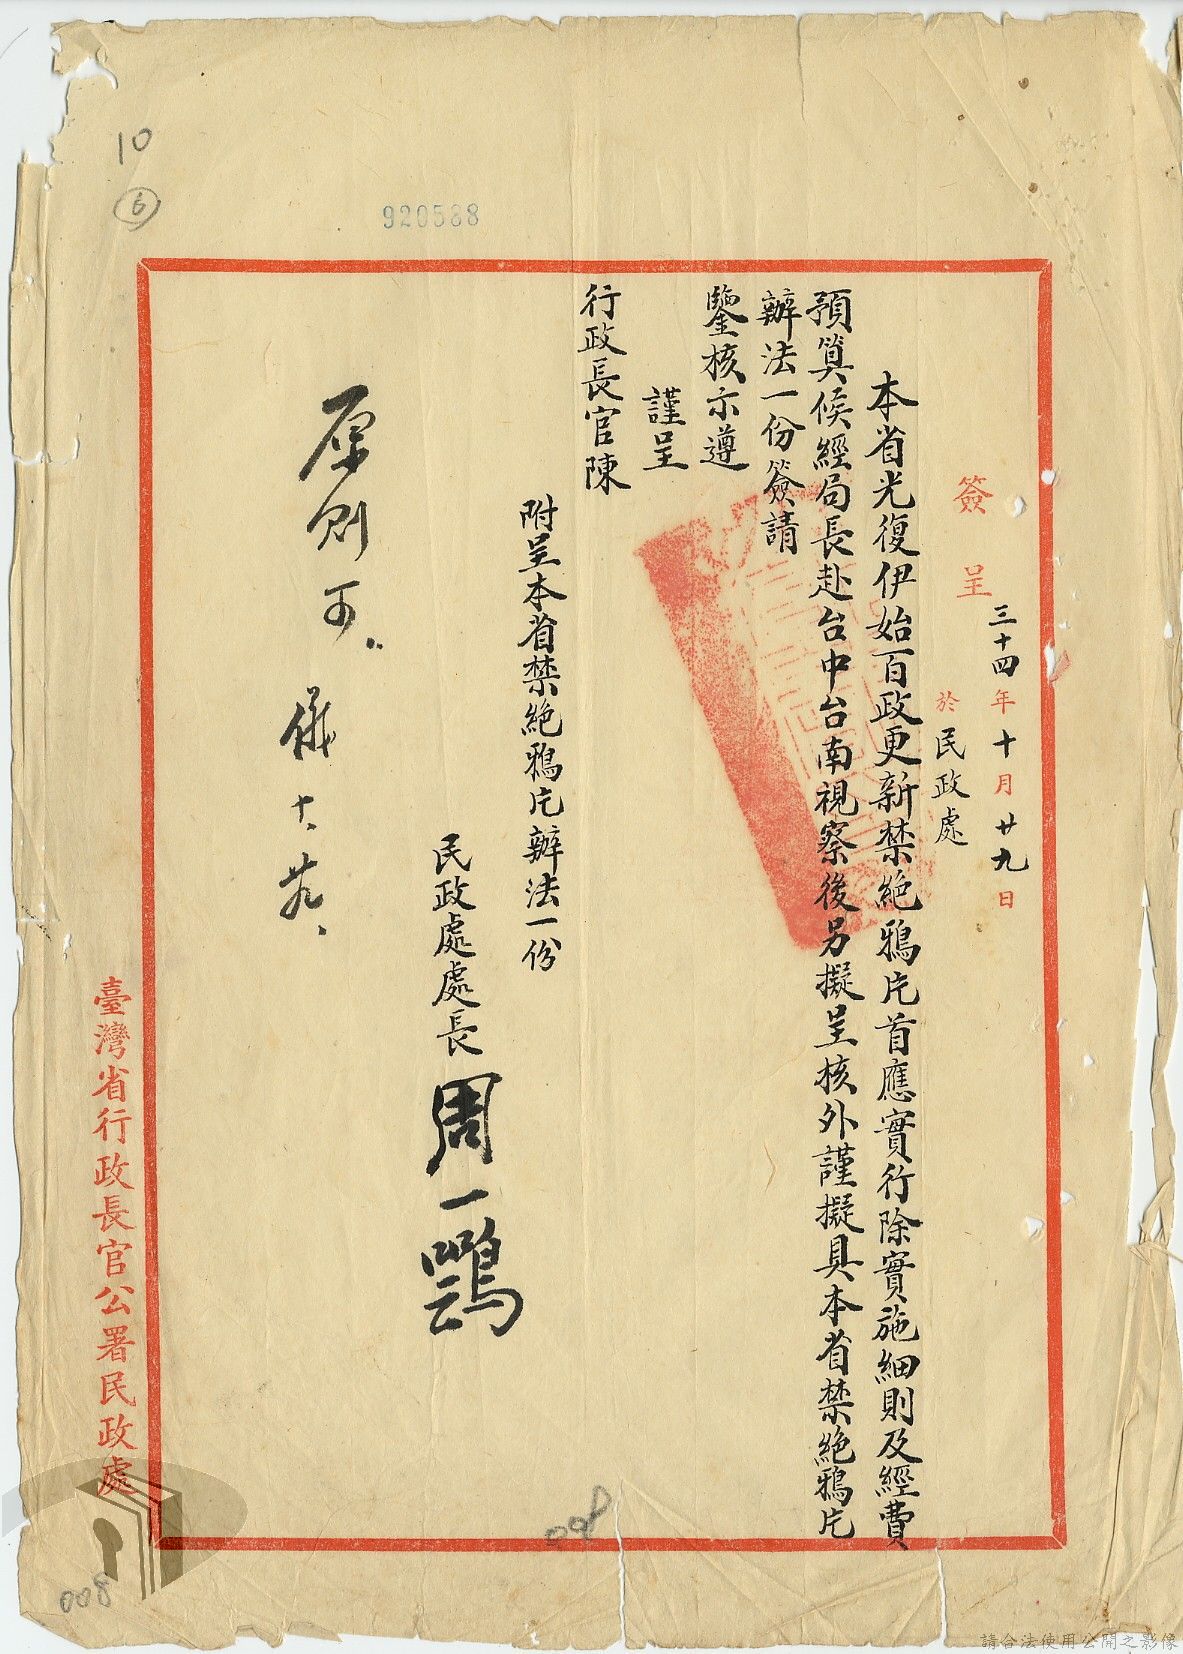 簽呈
三十四年十月廿九日
於民政處
本省光復伊始百政更新禁絕鴉片首應實行除實施細則及經費
預算候經局長赴台中台南視察後另擬呈核外謹擬具本省禁絕鴉片
辦法一份簽請
鑒核示遵
謹呈
行政長官陳
附呈本省禁絕鴉片辦法一份
民政處處長周一鶚
原則可.
儀十、廿九、
臺灣省行政長官公署民政處
10
6
920588
008
008
請合法使用公開之影像